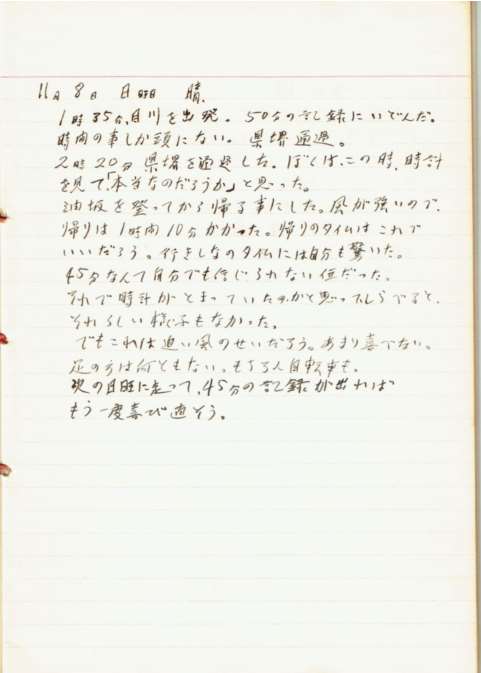 11月 8日 日曜日 晴.
1時35分、目川を出発。50分の記録にいどんだ。
時間の事しか頭にない。県堺通過。
2時20分 県堺を通過した。ぼくは、この時、時計
を見て、「本当なのだろうか」と思った。
油坂を登ってから帰る事にした。風が強いので、
帰りは1時間10分かかった。帰りのタイムはこれで
いいだろう。行きしなのタイムには自分も驚いた。
45分なんて自分でも信じられない位だった。
それで時計がとまっていたのかと思ってしらべると、
それらしい様子もなかった。
でもこれは追い風のせいだろう。あまり喜べない。
足の方は何ともない。もちろん自転車も。
次の日曜に走って、45分の記録が出れば
もう一度喜び直そう。